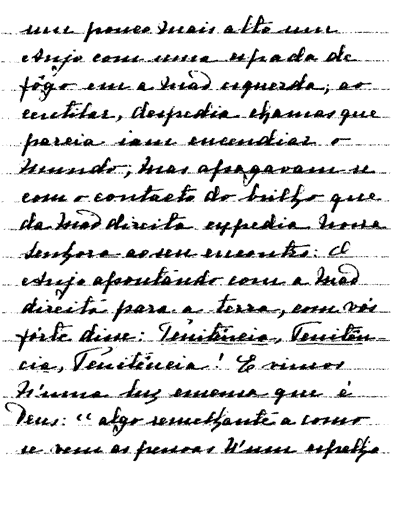 um pouco mais alto um
Anjo com uma espada de
fôgo em a mão esquerda; ao
centilar, despedia chamas que
parecia iam encendiar o
mundo; mas apagavam-se
com o contacto do brilho que
da mão direita expedia Nossa
Senhora ao seu encontro: O
Anjo apontando com a mão
direita para a terra, com vós
fórte disse: Penitência, Peniten-
cia, Penitência! E vimos
n'uma luz emensa que é
Deus: "algo semelhante a como
se vem as pessoas n'um espelho